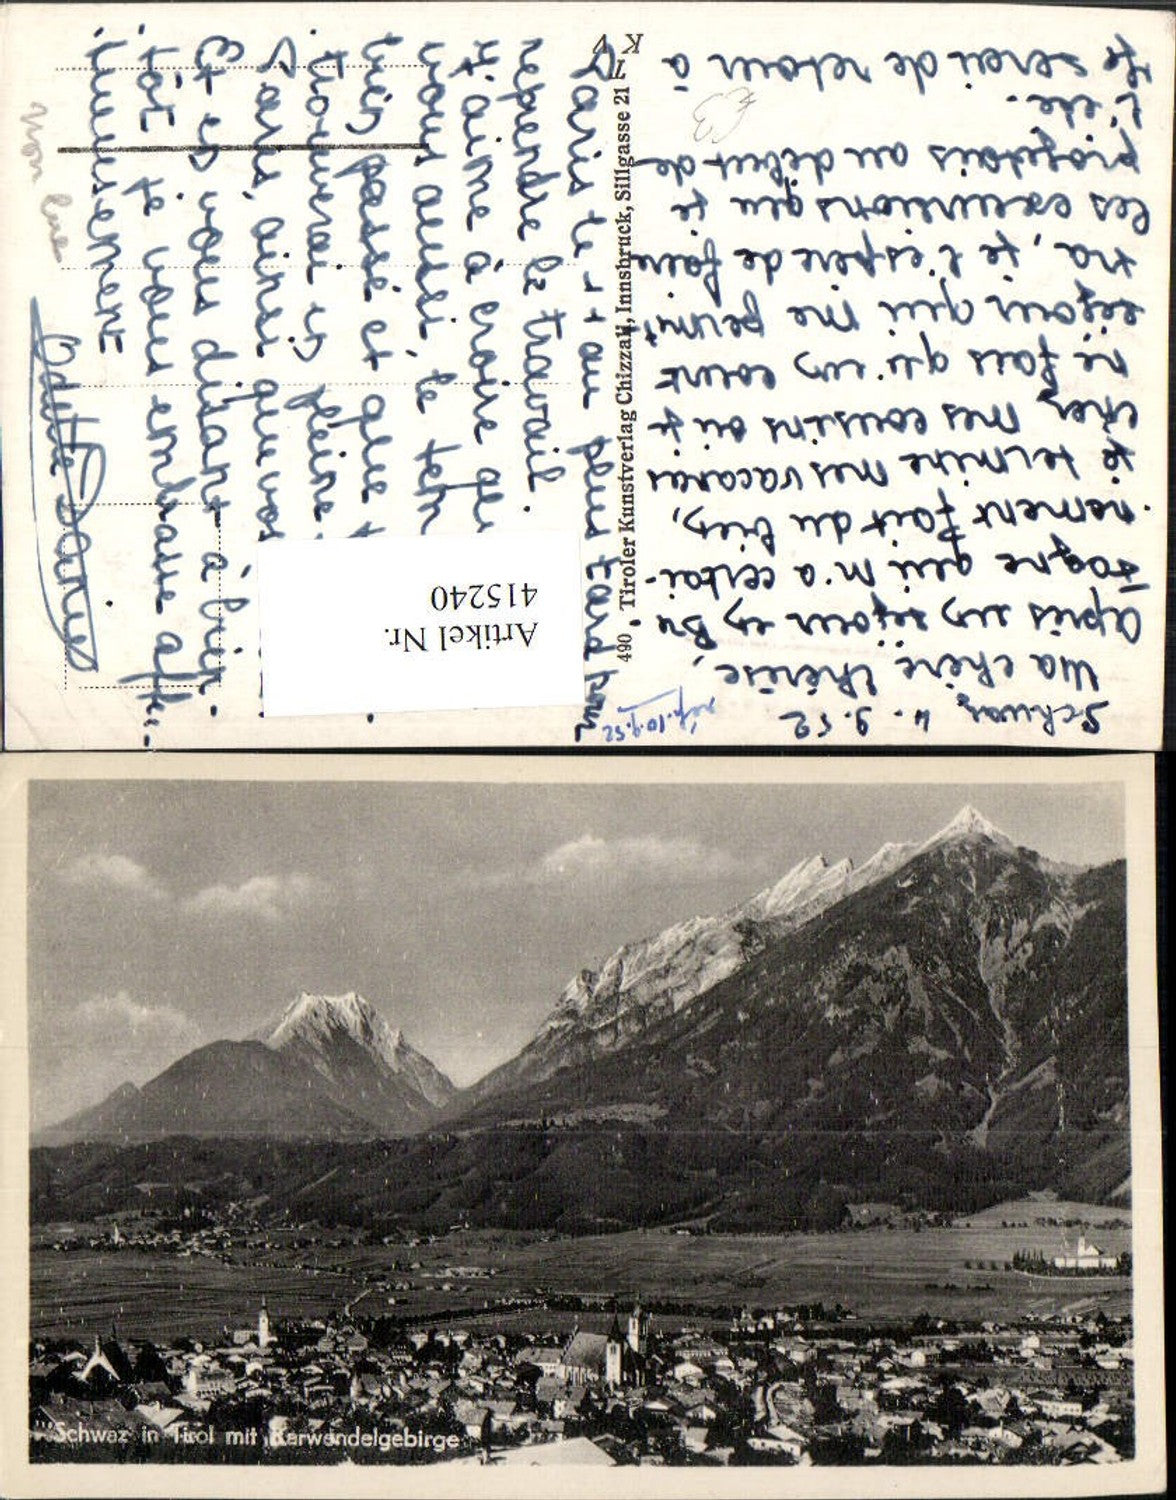 Schwaz 4.9.52
Ma chère Thérèse,
Après un séjour en Bre-
togne qui m'a certai-
nement fait du bien,
je termine mes vacances
chez mes cousins où je
ne fais qu'un court
séjour qui me permet-
tra, je l'espère de faire
les excursions que je
projetais au début de
l'été.
Je serai de retour à
Paris le au plus tard pour
reprendre le travail.
J'aime à croire que
vous aussi, le
bien passé et que
trouverai en pleine
Paris, ainsi que vos
Et en vous disant à bien-
tôt je vous embrasse affec-
tueusement
Odette
rép. 10.9.52
490 Tiroler Kunstverlag Chizzali, Innsbruck, Sillgasse 21
Artikel Nr.
415240
Schwaz in Tirol mit Karwendelgebirge